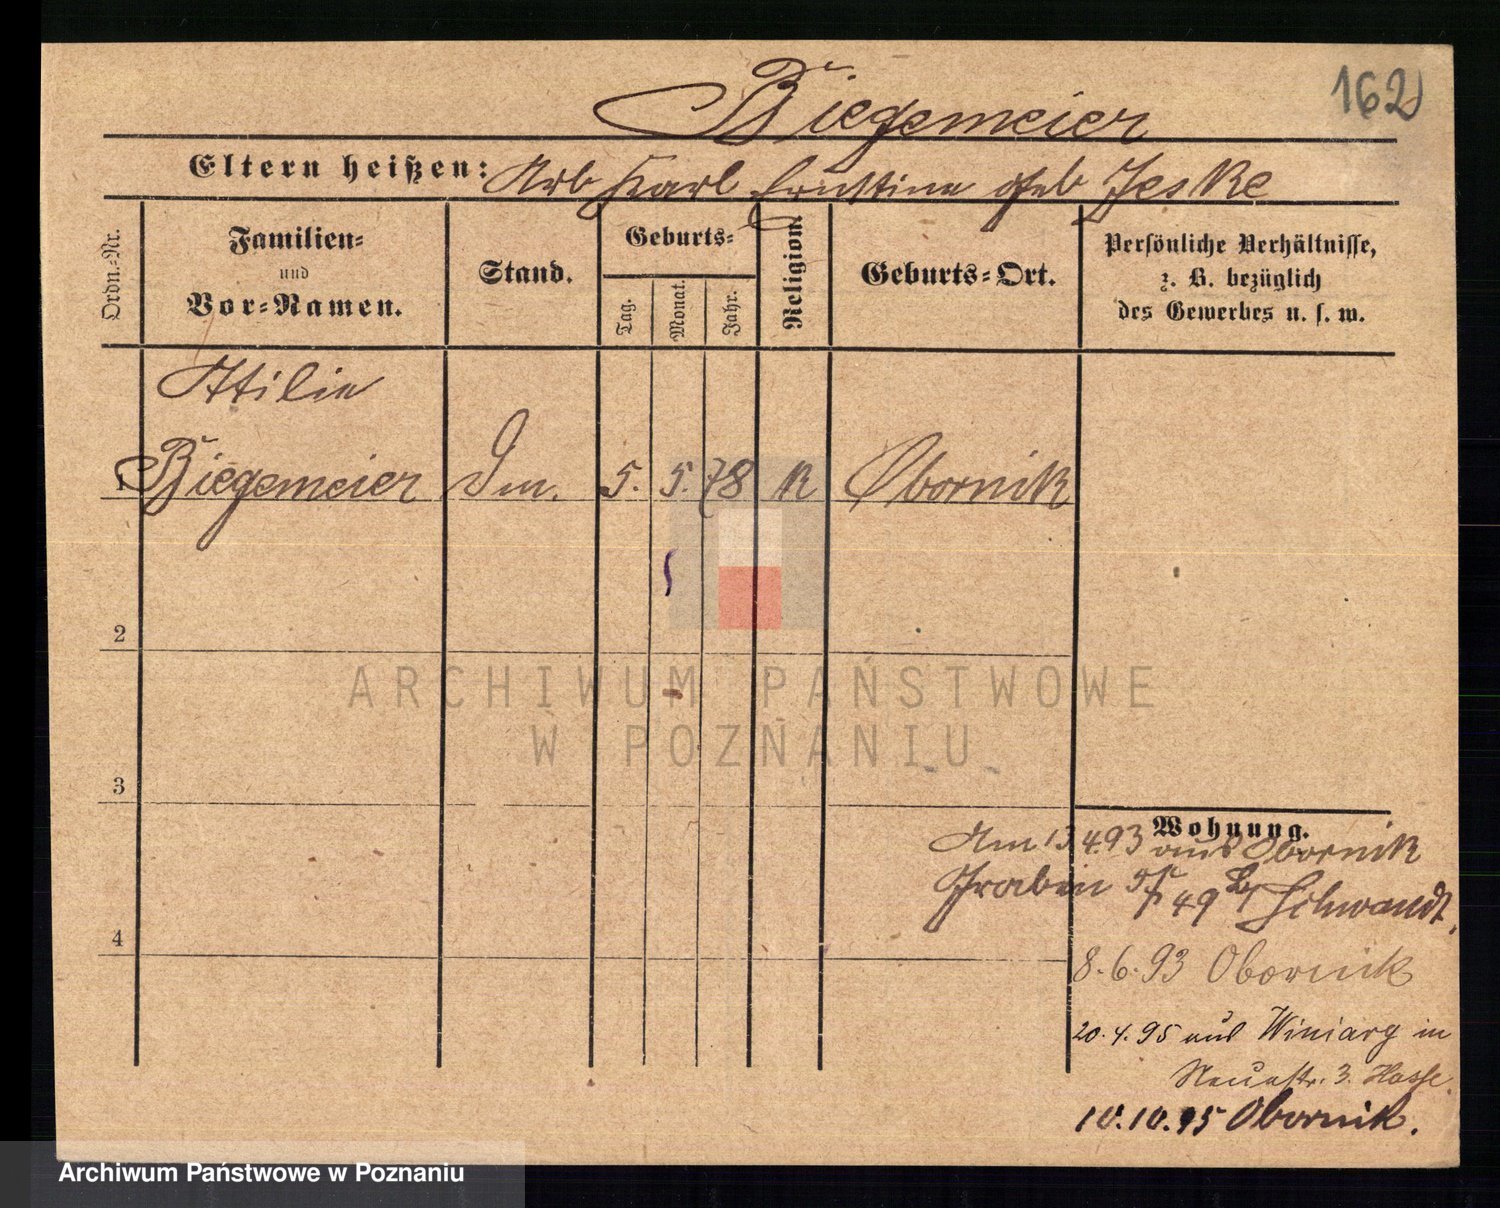 162
Biegemeier
Eltern heißen: Arb Karl Ernstine geb Jeske
Ordn.-Nr.
Familien-
und
Vor-Namen.
Stand.
Geburts-
Tag.
Monat.
Jahr.
Religion.
Geburts-Ort.
Persönliche Verhältnisse,
z. B. bezüglich
des Gewerbes u. s. w.
Ottilie
1 Biegemeier Dm. 5. 5. 78 k Obornik
2
3
4
ARCHIWUM PAŃSTWOWE
W POZNANIU
Wohnung.
Am 13 4.93 aus Obornik
Graben 49 Schwandt.
8.6.93 Obornik
20.4.95 aus Winiary in
Neuestr. 3. Hasse.
10.10.95 Obornik.
Archiwum Państwowe w Poznaniu